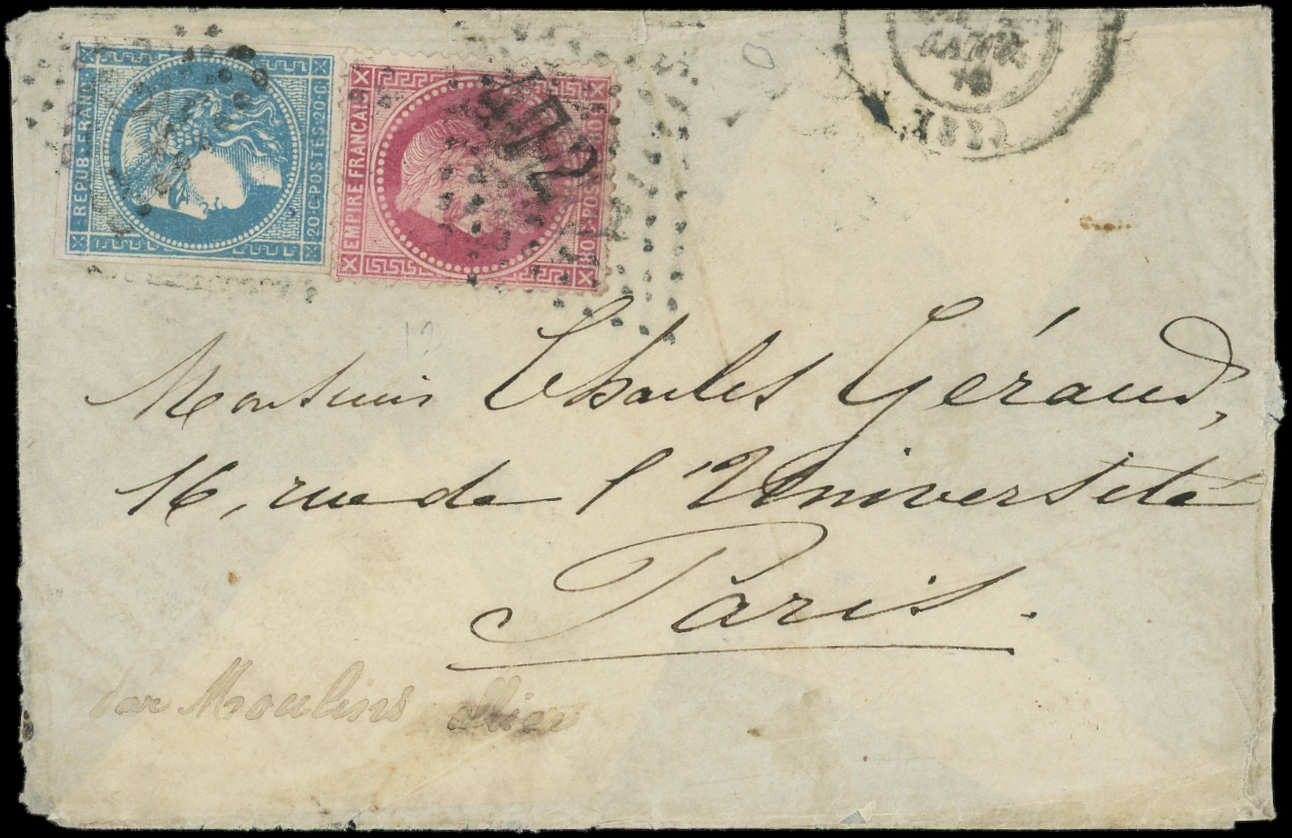 REPUB·FRANC·
20·C·POSTES·20·C
EMPIRE FRANÇAIS
Monsieur Charles Géraud,
16, rue de l'Université
Paris.
par Moulins allier